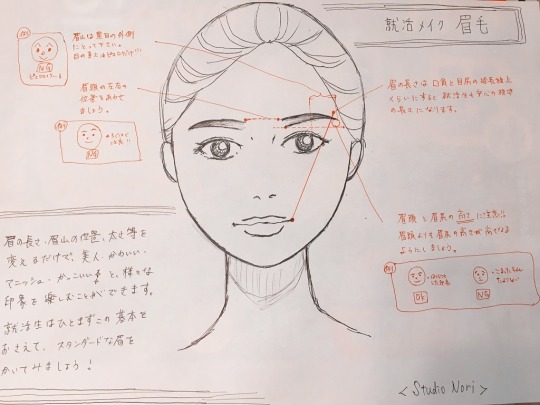 就活メイク 眉毛
眉山は黒目の外側
にとって下さい。
NG
眉頭の左右の
位置をあわせ
ましょう。
NG
眉の長さは口角と目尻の延長線上
くらいにすると
の長さになります。
眉頭と眉尻の高さに注意!!
眉頭よりも眉尻の高さが
ようにしましょう。
OK
NG
眉の長さ、眉山の位置、太さ等を
変えるだけで、美人・かわいい・
マニッシュ・かっこいい と、様々な
印象を楽しむことができます。
就活生はひとまずこの基本を
おさえて、スタンダードな眉を
かいてみましょう!
<Studio Nori>